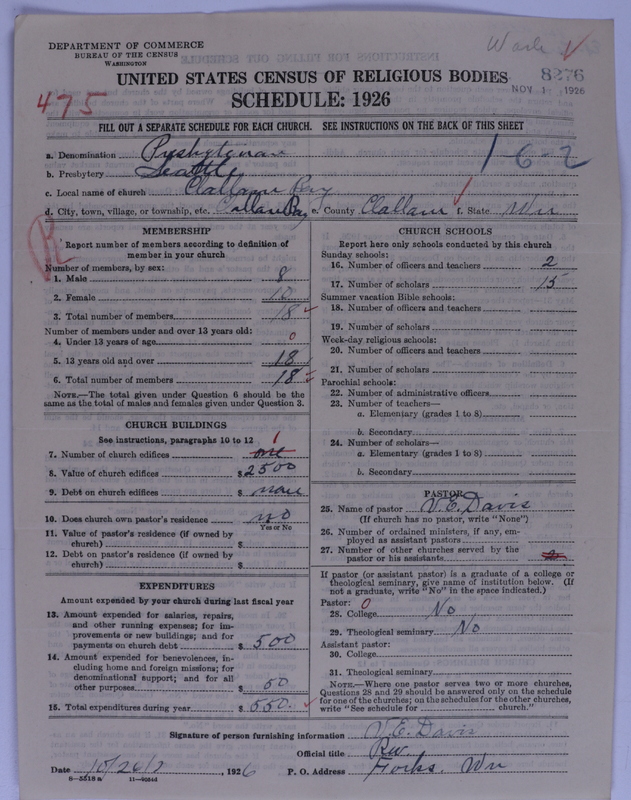 DEPARTMENT OF COMMERCE
BUREAU OF THE CENSUS
WASHINGTON
Wash
8276
NOV 1 1926
UNITED STATES CENSUS OF RELIGIOUS BODIES
475
SCHEDULE: 1926
FILL OUT A SEPARATE SCHEDULE FOR EACH CHURCH. SEE INSTRUCTIONS ON THE BACK OF THIS SHEET
a. Denomination Presbyterian
1 6-2
b. Presbytery Seattle
c. Local name of church Clallam Bay
d. City, town, village, or township, etc. Clallam Bay e. County Clallam f. State Wn
R
MEMBERSHIP
Report number of members according to definition of
member in your church
Number of members, by sex:
1. Male 8
2. Female 10
3. Total number of members 18
Number of members under and over 13 years old:
4. Under 13 years of age 0
5. 13 years old and over 18
6. Total number of members 18
NOTE.—The total given under Question 6 should be
same as the total of males and females given under Question 3.
CHURCH BUILDINGS
See instructions, paragraphs 10 to 12
1
7. Number of church edifices one
8. Value of church edifices $ 2500
9. Debt on church edifices $ none
10. Does church own pastor's residence no
Yes or No
11. Value of pastor's residence (if owned by
church) $
12. Debt on pastor's residence (if owned by
church) $
EXPENDITURES
Amount expended by your church during last fiscal year
13. Amount expended for salaries, repairs,
and other running expenses; for im-
provements or new buildings; and for
payments on church debt $ 500
14. Amount expended for benevolences, in-
cluding home and foreign missions; for
denominational support; and for all
other purposes $ 50
15. Total expenditures during year $ 550.
CHURCH SCHOOLS
Report here only schools conducted by this church
Sunday schools:
16. Number of officers and teachers 2
17. Number of scholars 15
Summer vacation Bible schools:
18. Number of officers and teachers
19. Number of scholars
Week-day religious schools:
20. Number of officers and teachers
21. Number of scholars
Parochial schools:
22. Number of administrative officers
23. Number of teachers—
a. Elementary (grades 1 to 8)
b. Secondary
24. Number of scholars—
a. Elementary (grades 1 to 8)
b. Secondary
PASTOR
25. Name of pastor V. E. Davis
(If church has no pastor, write "None")
26. Number of ordained ministers, if any, em-
ployed as assistant pastors
27. Number of other churches served by the
pastor or his assistants
If pastor (or assistant pastor) is a graduate of a college or
theological seminary, give name of institution below. (If
not a graduate, write "No" in the space indicated.)
Pastor: 0
28. College No
29. Theological seminary No
Assistant pastor:
30. College
31. Theological seminary
NOTE.—Where one pastor serves two or more churches,
Questions 28 and 29 should be answered only on the schedule
for one of the churches; on the schedules for the other churches,
write "See schedule for church."
Signature of person furnishing information V. E. Davis
Official title Rev
Date 1926 P. O. Address Forks, Wn
8—5518a 11—